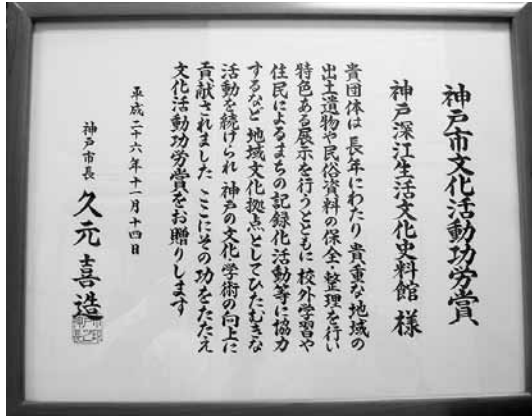 神戸市文化活動功労賞
神戸深江生活文化史料館 様
貴団体は 長年にわたり 貴重な地域の
出土遺物や民俗資料の保全・整理を行い
特色ある展示を行うとともに 校外学習や
住民によるまちの記録化活動等に協力
するなど 地域文化拠点としてひたむきな
活動を続けられ 神戸の文化・学術の向上に
貢献されました ここにその功をたたえ
文化活動功労賞をお贈りします
平成二十六年十一月十四日
神戸市長 久元喜造